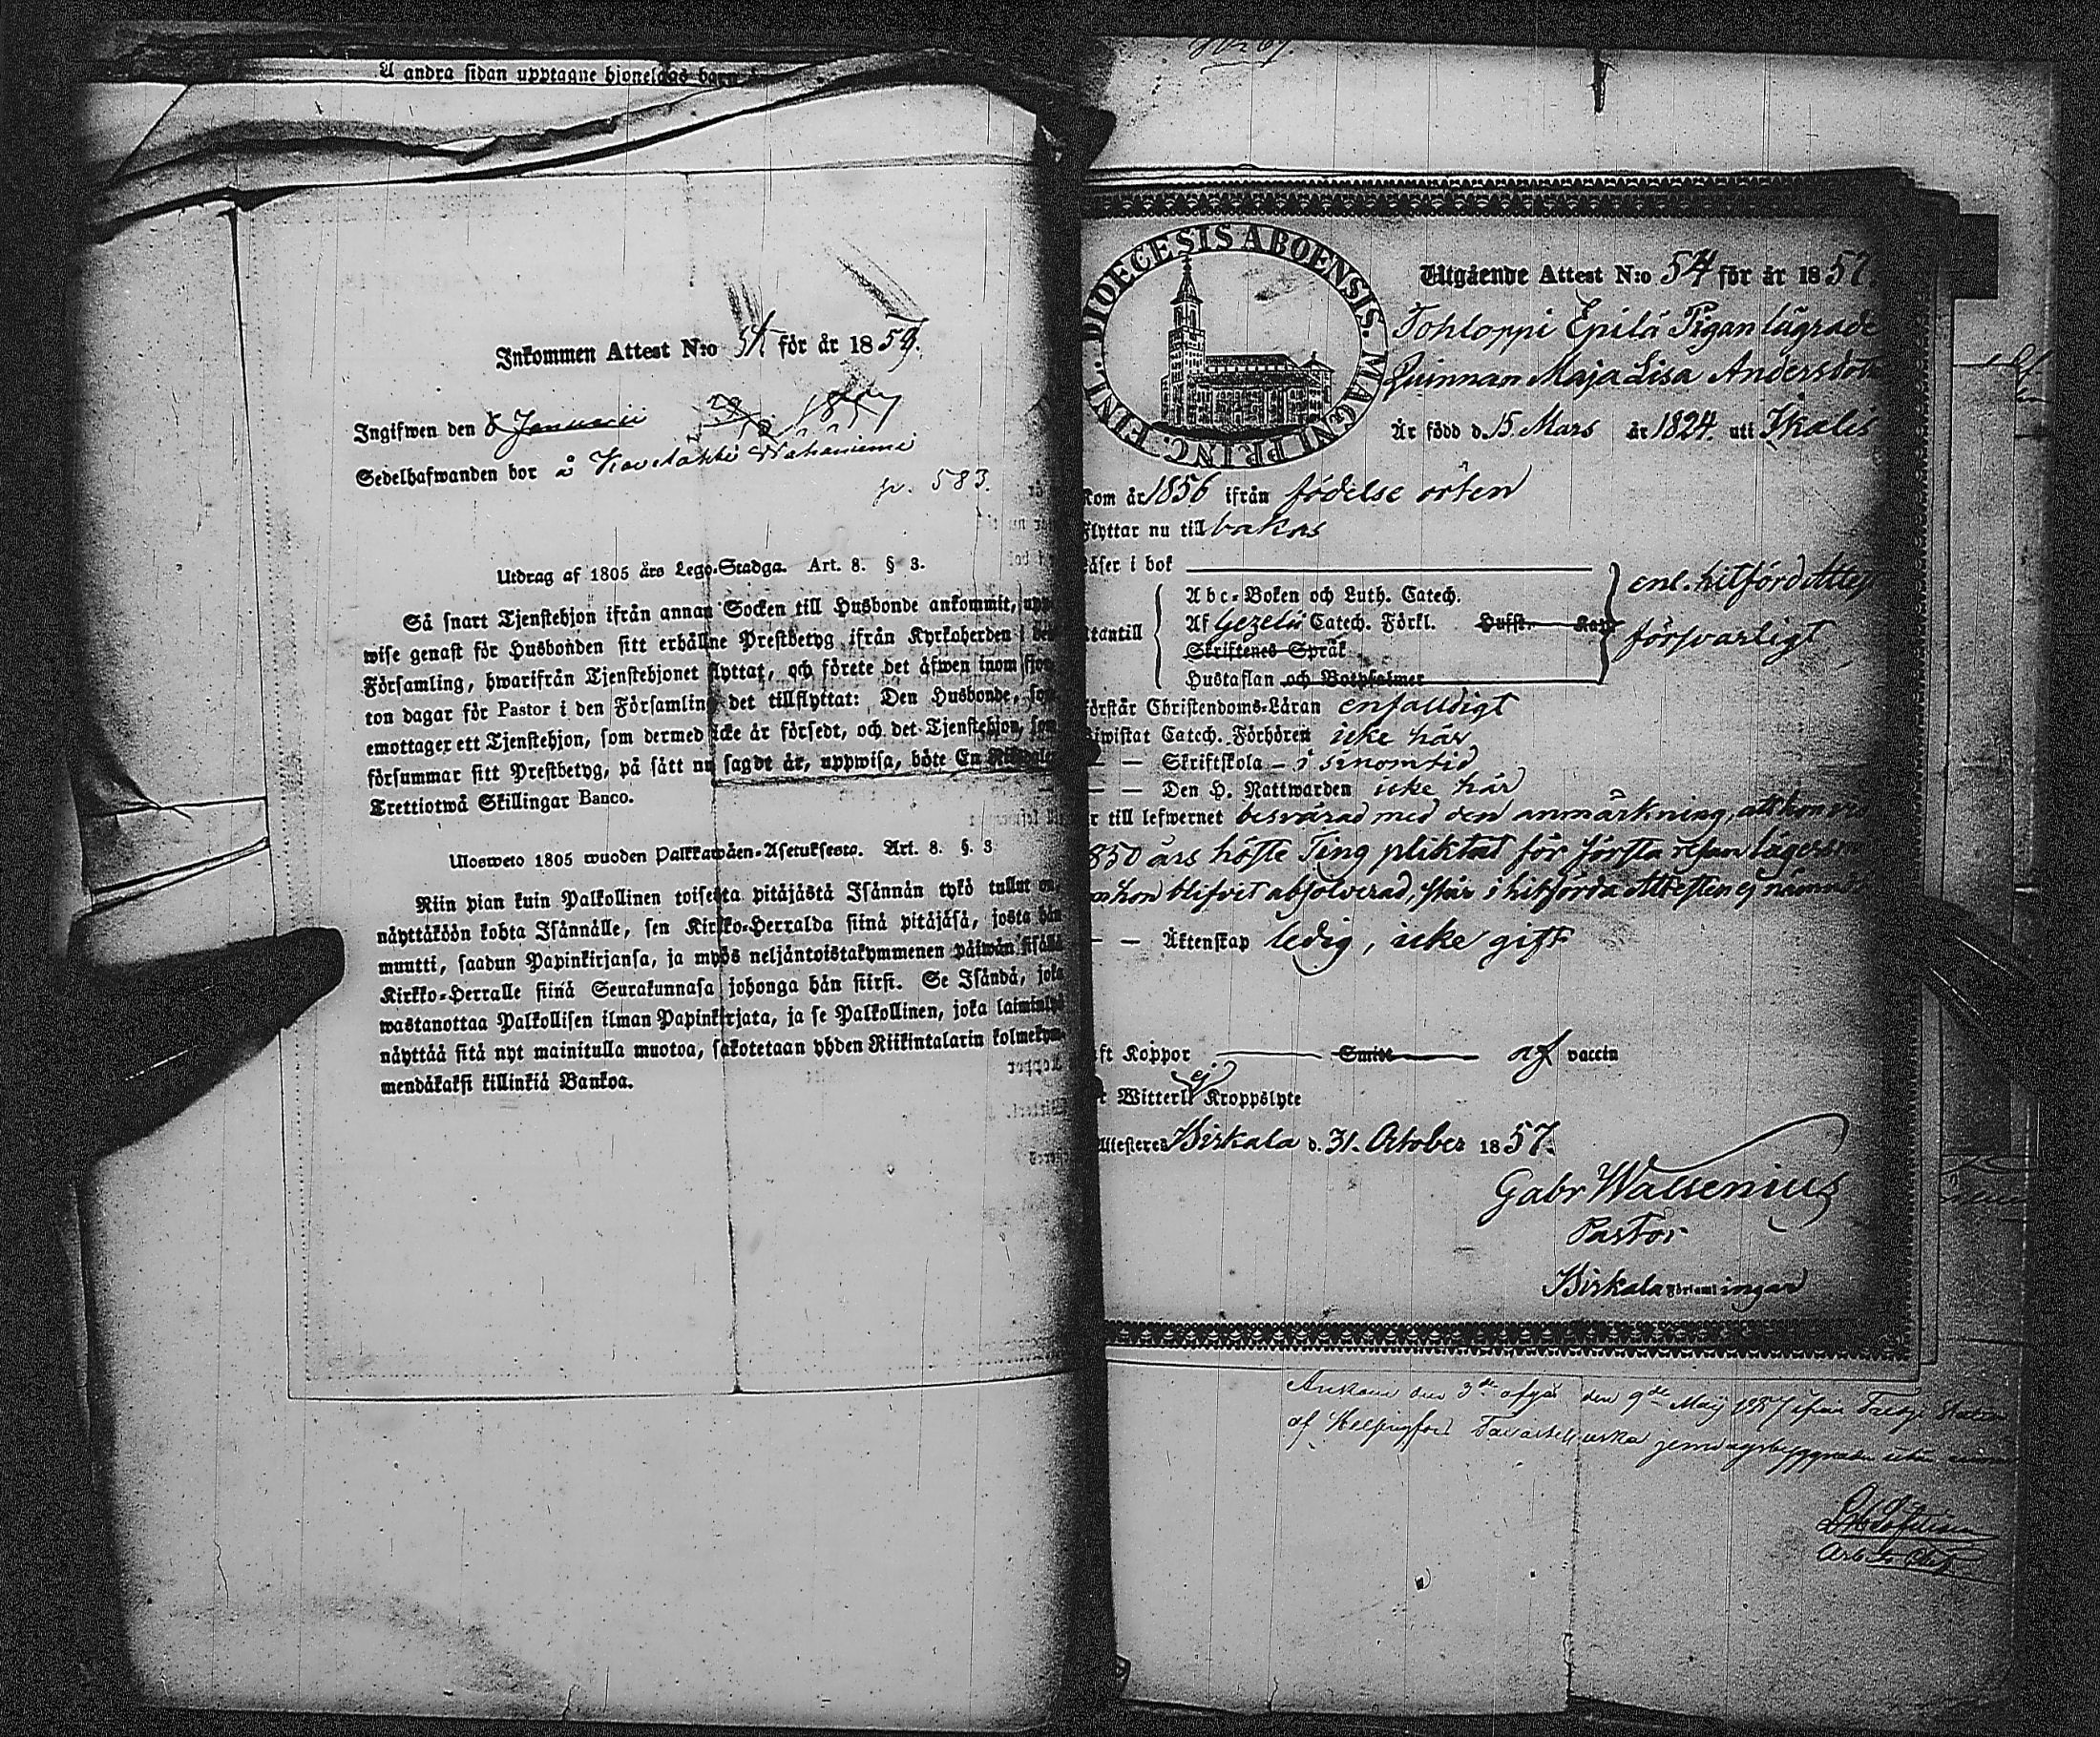 A andra sidan upptagne hjonelags barn
Inkommen Attest N:o 54 för år 1859.
Ingifwen den 8 Januarii
Sedelhafwanden bor å
p. 583.
Utdrag af 1805 års Lego-Stadga. Art. 8. § 3.
Så snart Tjenstehjon ifrån annan Socken till Husbonde ankommit, upp
wise genast för Husbonden sitt erhållne Prestbetyg ifrån Kyrkoherden i den
Församling, hwarifrån Tjenstehjonet flyttat, och förete det äfwen inom fjor
ton dagar för Pastor i den Församling det tillflyttat: Den Husbonde, som
emottager ett Tjenstehjon, som dermed icke är försedt, och det Tjenstehjon, som
försummar sitt Prestbetyg, på sätt nu sagdt är, uppwisa, böte En Riksdaler
Trettiotwå Skillingar Banco.
Ulosweto 1805 wuoden Palkkawäen-Asetuksesta. Art. 8. §. 3
Niin pian kuin Palkollinen toisesta pitäjästä Isännän tykö tullut on,
näyttäköön kohta Isännälle, sen Kirkko-Herralda siinä pitäjäsä, josta hän
muutti, saadun Papinkirjansa, ja myös neljäntoistakymmenen päiwän sisällä
Kirkko-Herralle siinä Seurakunnasa johonga hän siirsi. Se Isändä, joka
wastanottaa Palkollisen ilman Papinkirjata, ja se Palkollinen, joka laiminlyö
näyttää sitä nyt mainitulla muotoa, sakotetaan yhden Riikintalarin kolmekym-
mendäkaksi killinkiä Bankoa.
DIOECESIS ABOENSIS. MAGNI PRINC. FINL.
Utgående Attest N:o 54 för år 1857.
Tohloppi Epilä Pigan lägrade
Quinnan Maja Lisa Andersdott
Är född d. 15 Mars år 1824. uti Ikalis
kom år 1856 ifrån födelse orten
flyttar nu till bakas
läser i bok
Abc-Boken och Luth. Catech.
Af Gezelii Catech. Förkl. Hufst. Kap
Skriftenes Språk
Hustaflan och Botpsalmer
utantill
enl. hitförd Attest
försvarligt
förstår Christendoms-Läran enfaldigt
Biwistat Catech. Förhören icke här
— — Skriftskola - i sinom tid
— — Den H. Nattwarden icke här
är till lefwernet besvärad med den anmärkning, att hon vid
1850 års höste Ting pliktat för första resan lägersm
hon blifvit absolverad, står i hitförda Attesten ej nämndt
— — Äktenskap ledig, icke gift
haft Koppor Smitt af vaccin
Witterl. ej Kroppslyte
Attesteres Birkala d. 31. October 1857.
Gabr Wallenius
Pastor
Birkala Församlingar
Ankom den 3de afgår den 9de Maij 1857 ifrån Station
af Helsingfors Tavastehuska jernvägsbyggnaden utan